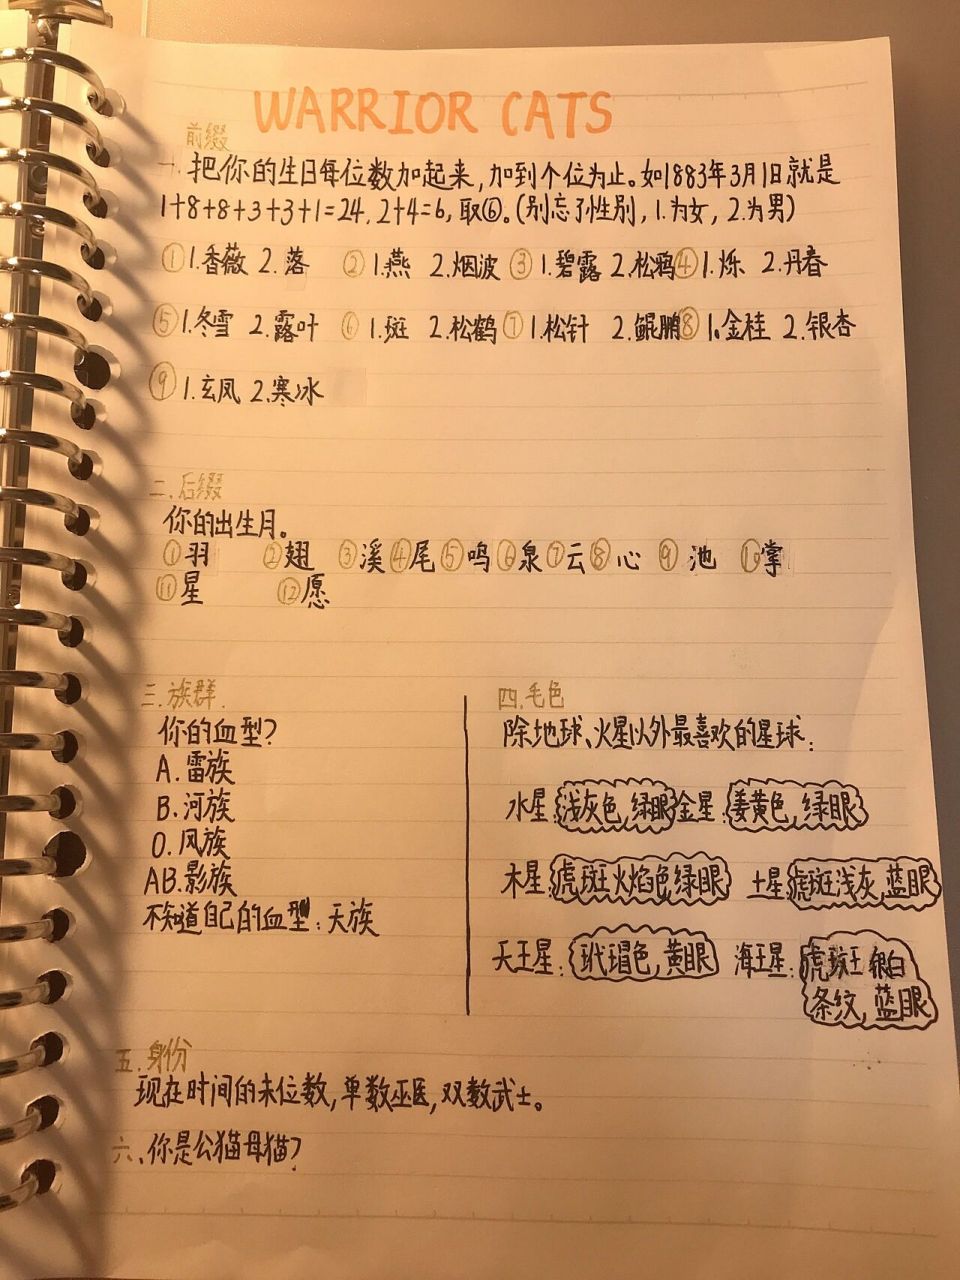 WARRIOR CATS
前缀
一.把你的生日每位数加起来,加到个位为止。如1883年3月1日就是
1+8+8+3+3+1=24,2+4=6,取⑥。(别忘了性别,1.为女,2.为男)
①1.香薇 2.落 ②1.燕 2.烟波 ③1.碧露 2.松鸦 ④1.烁 2.丹春
⑤1.冬雪 2.露叶 ⑥1.斑 2.松鹤 ⑦1.松针 2.鲲鹏 ⑧1.金桂 2.银杏
⑨1.玄凤 2.寒冰
二.后缀
你的出生月。
①羽 ②翅 ③溪 ④尾 ⑤鸣 ⑥泉 ⑦云 ⑧心 ⑨池 ⑩掌
⑪星 ⑫愿
三.族群.
你的血型?
A.雷族
B.河族
O.风族
AB.影族
不知道自己的血型:天族
四.毛色
除地球、火星以外最喜欢的星球:
水星:浅灰色,绿眼 金星:姜黄色,绿眼
木星:虎斑火焰色绿眼 土星:虎斑浅灰,蓝眼
天王星:玳瑁色,黄眼 海王星:虎斑 银白
条纹,蓝眼
五.身份
现在时间的末位数,单数巫医,双数武士。
六、你是公猫母猫?